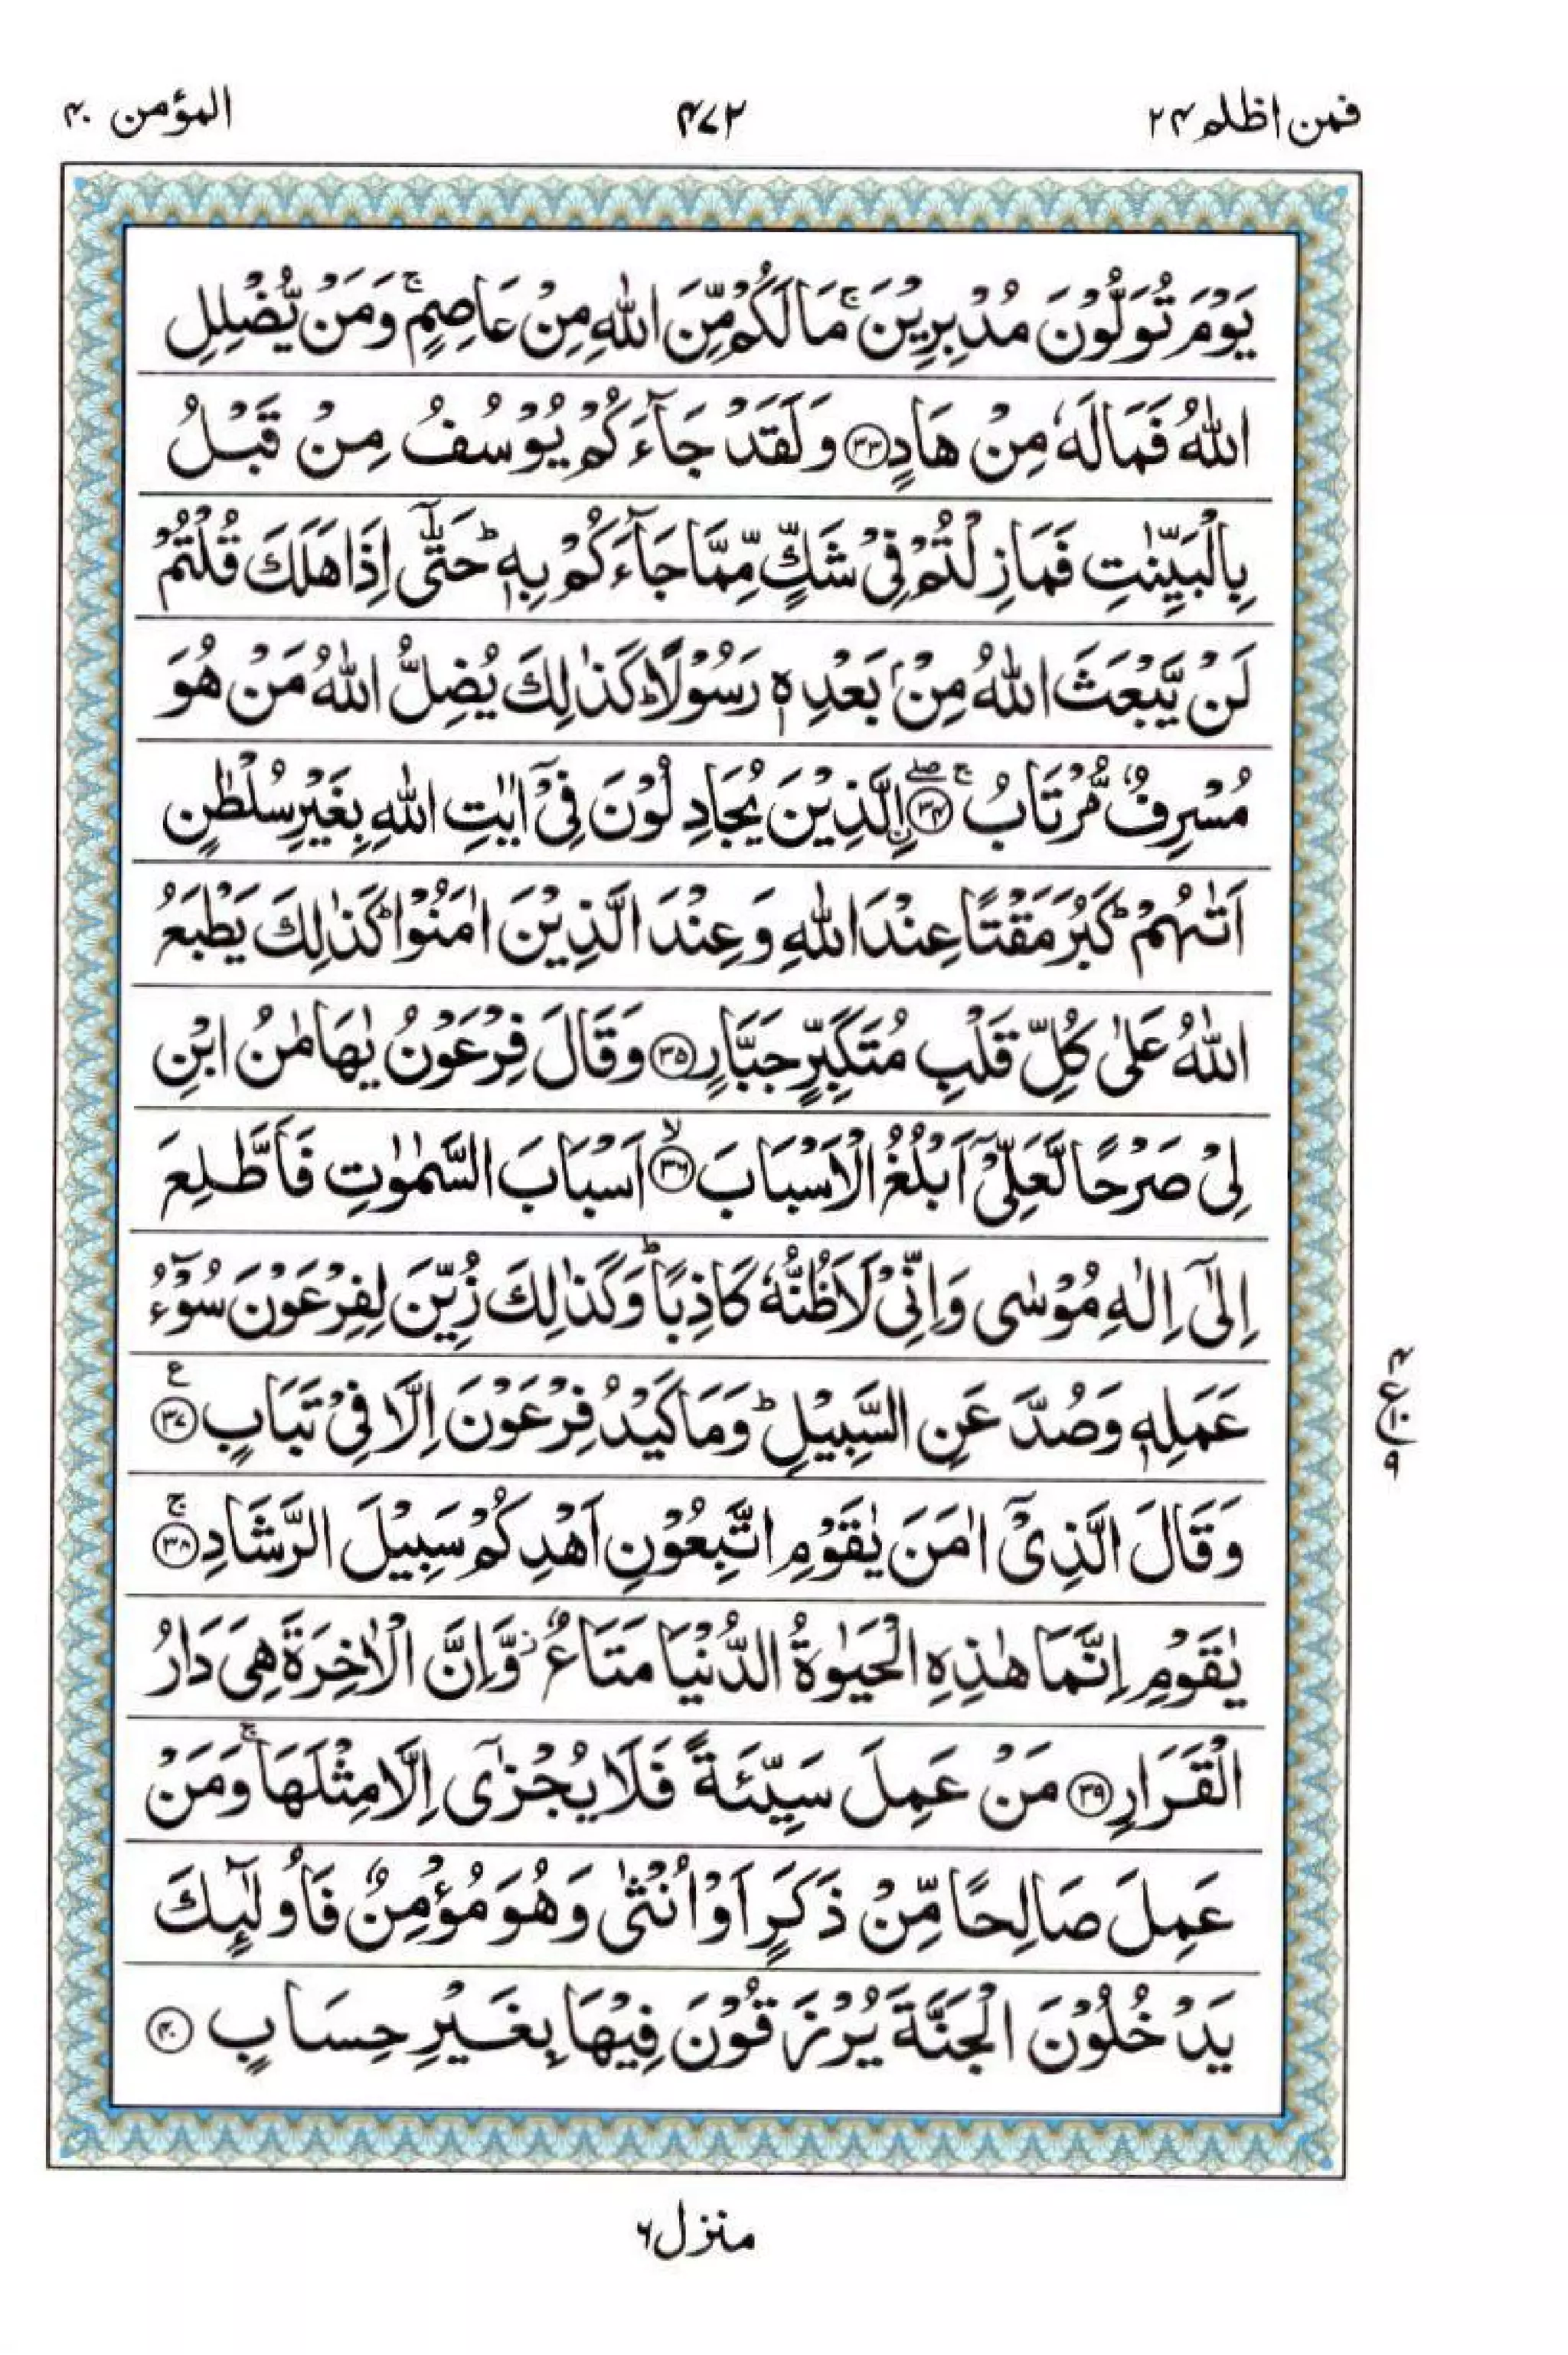 فمن اظلم ۲۴
۴۷۲
المؤمن ۴۰
يَوْمَ تُوَلُّوْنَ مُدْبِرِيْنَ ۚ مَا لَكُمْ مِّنَ اللّٰهِ مِنْ عَاصِمٍ ۚ وَمَنْ يُّضْلِلِ
اللّٰهُ فَمَا لَهٗ مِنْ هَادٍ ﴿۳۳﴾ وَلَقَدْ جَآءَكُمْ يُوْسُفُ مِنْ قَبْلُ
بِالْبَيِّنٰتِ فَمَا زِلْتُمْ فِيْ شَكٍّ مِّمَّا جَآءَكُمْ بِهٖ ؕ حَتّٰٓى اِذَا هَلَكَ قُلْتُمْ
لَنْ يَّبْعَثَ اللّٰهُ مِنْۢ بَعْدِهٖ رَسُوْلًا ؕ كَذٰلِكَ يُضِلُّ اللّٰهُ مَنْ هُوَ
مُسْرِفٌ مُّرْتَابُ ۚۖ ﴿۳۴﴾ اِۨلَّذِيْنَ يُجَادِلُوْنَ فِيْٓ اٰيٰتِ اللّٰهِ بِغَيْرِ سُلْطٰنٍ
اَتٰىهُمْ ؕ كَبُرَ مَقْتًا عِنْدَ اللّٰهِ وَعِنْدَ الَّذِيْنَ اٰمَنُوْا ؕ كَذٰلِكَ يَطْبَعُ
اللّٰهُ عَلٰى كُلِّ قَلْبِ مُتَكَبِّرٍ جَبَّارٍ ﴿۳۵﴾ وَقَالَ فِرْعَوْنُ يٰهَامٰنُ ابْنِ
لِيْ صَرْحًا لَّعَلِّيْٓ اَبْلُغُ الْاَسْبَابَ ﴿۳۶﴾ۙ اَسْبَابَ السَّمٰوٰتِ فَاَطَّلِعَ
اِلٰٓى اِلٰهِ مُوْسٰى وَاِنِّيْ لَاَظُنُّهٗ كَاذِبًا ؕ وَكَذٰلِكَ زُيِّنَ لِفِرْعَوْنَ سُوْٓءُ
عَمَلِهٖ وَصُدَّ عَنِ السَّبِيْلِ ؕ وَمَا كَيْدُ فِرْعَوْنَ اِلَّا فِيْ تَبَابٍ ﴿۳۷﴾ ع
وَقَالَ الَّذِيْٓ اٰمَنَ يٰقَوْمِ اتَّبِعُوْنِ اَهْدِكُمْ سَبِيْلَ الرَّشَادِ ﴿۳۸﴾ۚ
يٰقَوْمِ اِنَّمَا هٰذِهِ الْحَيٰوةُ الدُّنْيَا مَتَاعٌ ؗ وَّاِنَّ الْاٰخِرَةَ هِيَ دَارُ
الْقَرَارِ ﴿۳۹﴾ مَنْ عَمِلَ سَيِّئَةً فَلَا يُجْزٰٓى اِلَّا مِثْلَهَا ۚ وَمَنْ
عَمِلَ صَالِحًا مِّنْ ذَكَرٍ اَوْ اُنْثٰى وَهُوَ مُؤْمِنٌ فَاُولٰٓئِكَ
يَدْخُلُوْنَ الْجَنَّةَ يُرْزَقُوْنَ فِيْهَا بِغَيْرِ حِسَابٍ ﴿۴۰﴾
ع ۴ ۱۰ ۹
منزل ۶